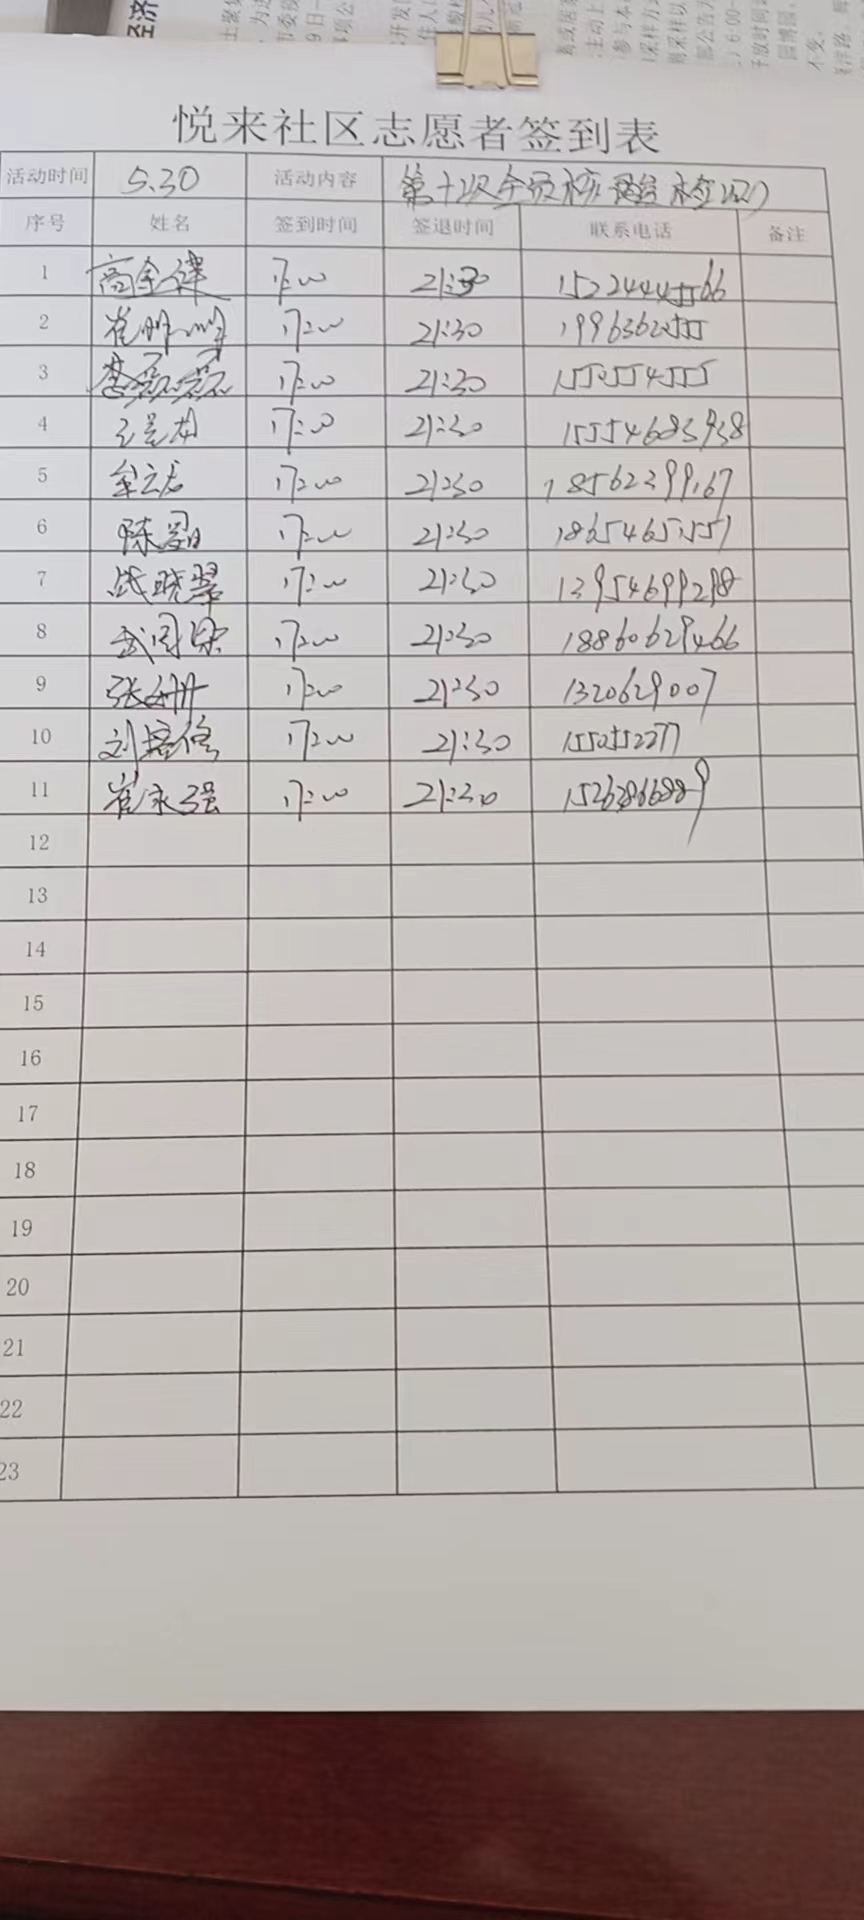 悦来社区志愿者签到表
活动时间 5.30 活动内容 第十次全员核酸检测
序号 姓名 签到时间 签退时间 联系电话 备注
1 高金 17:00 21:30 15224445566
2 崔明明 17:00 21:30
3 李磊磊 17:00 21:30
4 17:00 21:30 15554683938
5 17:00 21:30 18562399167
6 陈 17:00 21:30 18654651551
7 战晓翠 17:00 21:30 13954699298
8 武国荣 17:00 21:30 18860629466
9 张姗 17:00 21:30 1320629007
10 刘培修 17:00 21:30
11 崔永强 17:00 21:30 15263866889
12
13
14
15
16
17
18
19
20
21
22
23